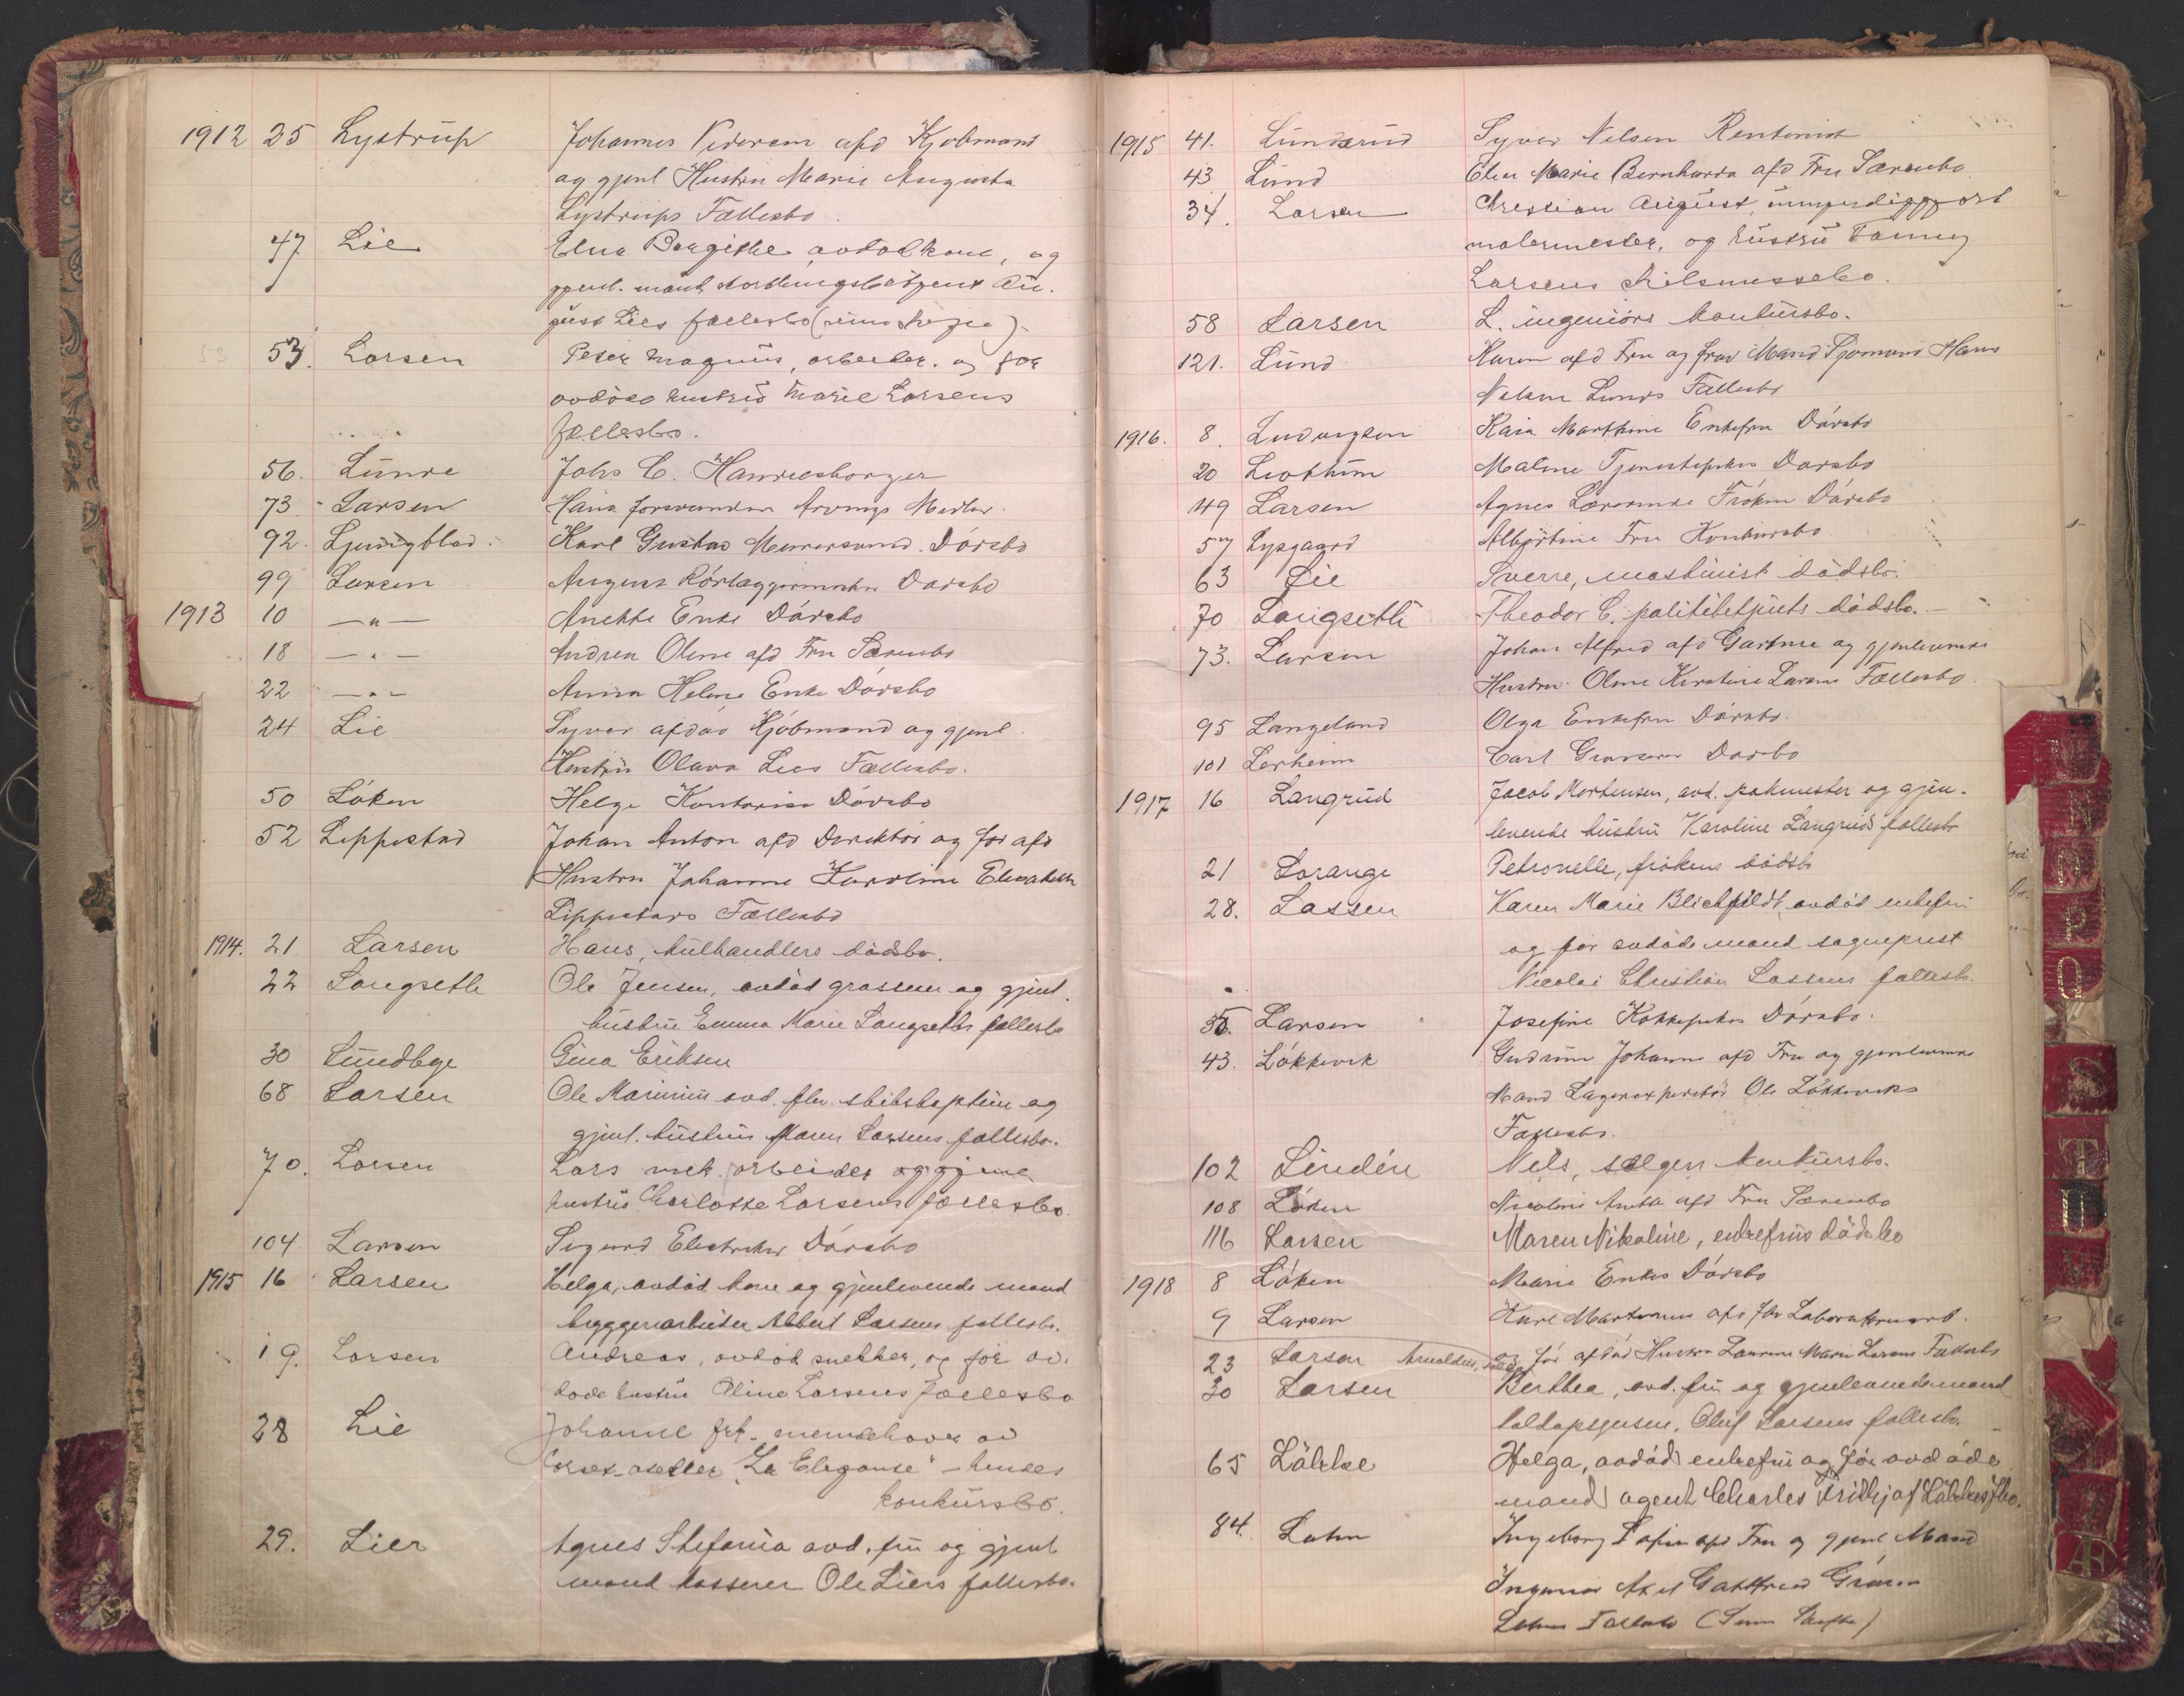 1912 25 Lystrup Johannes afd Kjøbmand
og gjenl Hustru Marie Augusta
Lystrups Fællesbo.
47 Lie Elna Bergithe avdød kone, og
gjenl. mand stortingsbetjent Au-
gust Lies fællesbo
53 53. Larsen Peter Magnus, arbeider. og før
avdøde hustru Marie Larsens
fællesbo.
56. Lunde Johs C. Handelsborger
73. Larsen Hans forsvunden Arvings Midler.
92. Ljungblad. Karl Gustav Dødsbo
99 Larsen August Rørlæggermester Dødsbo
1913 10 —"— Anette Enke Dødsbo
18 —"— Andrea Oline afd Fru Særenbo
22 —"— Anna Helene Enke Dødsbo
24 Lie Syver afdød Kjøbmand og gjenl.
Hustru Olava Lies Fællesbo.
50 Løken Helge Kontorist Dødsbo
52 Lippestad Johan Anton afd Direktør og før afd
Hustru Johanne Karoline Elisabeth
Lippestads Fællesbo
1914. 21. Larsen Hans, kulhandlers dødsbo.
22 Langseth Ole Jensen, avdød grosserer og gjenl.
hustru Emma Marie Langseths fællesbo
30 Lundbye Gina Eriksen
68 Larsen Ole Marinius avd. fhv. skibskaptein og
gjenl. hustru Maren Larsens fællesbo.
70. Larsen Lars mek. arbeider og gjenl.
hustru Charlotte Larsens fællesbo.
104. Larsen Sigurd Elektriker Dødsbo
1915 16 Larsen Helga, avdød kone og gjenlevende mand
bryggeriarbeider Albert Larsens fællesbo.
19. Larsen Andreas, avdød snekker, og før av-
døde hustru Oline Larsens fællesbo
28 Lie Johanne frk. innehaver av
Corset-atelier "La Elegance" – hendes
konkursbo.
29. Lier Agnes Stefania avd. fru og gjenl
mand kasserer Ole Liers fællesbo.
1915 41. Lunderud Syver Nilsen Rentenist
43 Lund Elen Marie Bernharda afd Fru Særenbo.
34. Larsen Christian August, umyndiggjort
malermester, og hustru Fanny
Larsens
58 Larsen L. ingeniørs konkursbo.
121. Lund Karen afd Fru og frav Mand Sjømand Hans
Nelson Lunds Fællesbo
1916. 8. Ludvigsen Kaia Marthine Enkefru Dødsbo
20 Malene Tjenestepikes Dødsbo
49 Larsen Agnes Lærerinde Frøken Dødsbo
57 Lysgaard Albertine Fru Konkursbo
63 Lie Sverre, maskinist dødsbo.
70 Langseth Theodor C. politibetjents dødsbo.
73. Larsen Johan Alfred afd Gartner og gjenlevende
Hustru Oline Kirstine Larsens Fællesbo.
95 Langeland Olga Enkefru Dødsbo.
101 Lerheim Carl Dødsbo
1917 16 Langrud Jacob Mortensen, avd. pakmester og gjen-
levende hustru Karoline Langruds fællesbo
21 Lorange Petronelle, frøkens dødsbo
28. Lassen Karen Marie Blichfeldt avdød enkefru
og før avdøde mand sogneprest
Nicolai Christian Lassens fællesbo.
35. Larsen Josefine Kokkepikes Dødsbo.
43. Løkkevik Gudrun Johanne afd Fru og gjenlevende
Mand Lagerexpeditør Ole Løkkeviks
Fællesbo.
102 Lindén Nils, sælgers konkursbo.
108 Løken Nicoline Anette afd Fru Særenbo
116 Larsen Maren Nikoline, enkefrus dødsbo
1918 8 Løken Marie Enkes Dødsbo
9 Larsen Karl Martinius afd fhv Laboratoriearb.
og før afdød Hustru Laurine Marie Larsens Fællesbo
23 Larsen
30 Larsen Berthea, avd. fru og gjenlevende mand
Oluf Larsens fællesbo.
65 Løkke Helga, avdød enkefru og før avdøde
mand agent Charles Fridtjof Løkkes fbo.
84. Lohn Ingeborg afd Fru og gjenl Mand
Ingeniør Axel Gottfried
Lohns Fællesbo